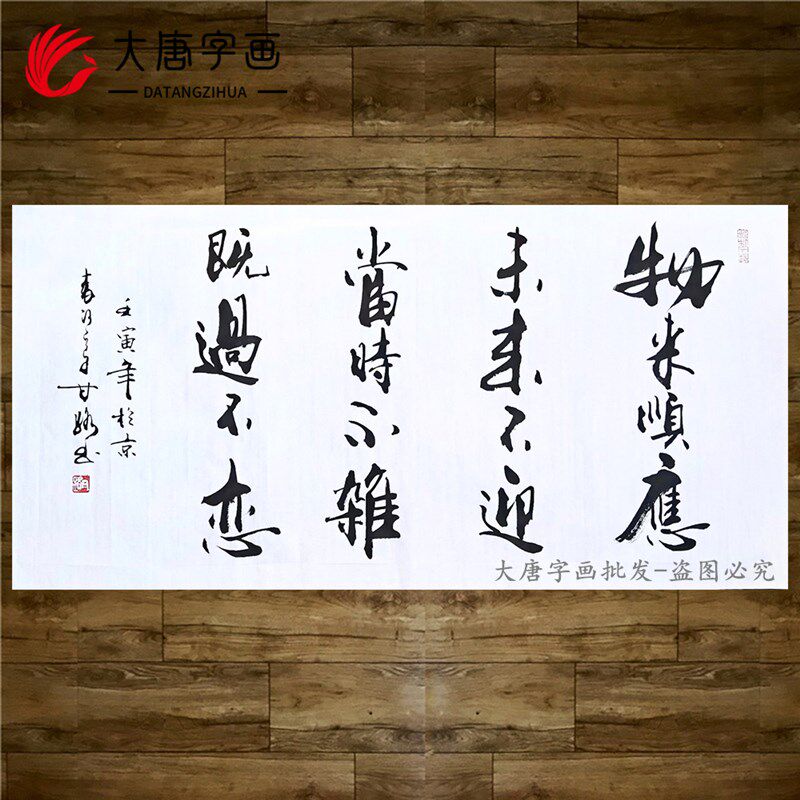 大唐字画
DATANGZIHUA
物来順應
未来不迎
當時不雜
既過不恋
壬寅年於京
大唐字画批发-盗图必究